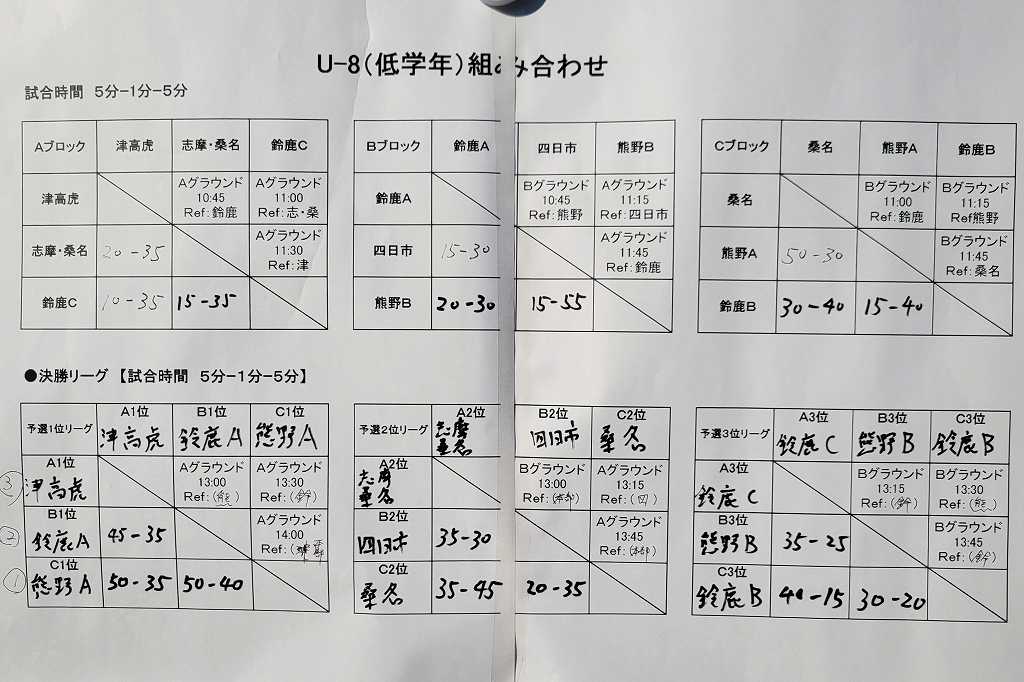 U-8(低学年)組み合わせ
試合時間 5分-1分-5分
Aブロック 津高虎 志摩・桑名 鈴鹿C
津高虎 Aグラウンド 10:45 Ref:鈴鹿 Aグラウンド 11:00 Ref:志・桑
志摩・桑名 20-35 Aグラウンド 11:30 Ref:津
鈴鹿C 10-35 15-35
Bブロック 鈴鹿A 四日市 熊野B
鈴鹿A Bグラウンド 10:45 Ref:熊野 Aグラウンド 11:15 Ref:四日市
四日市 15-30 Aグラウンド 11:45 Ref:鈴鹿
熊野B 20-30 15-55
Cブロック 桑名 熊野A 鈴鹿B
桑名 Bグラウンド 11:00 Ref:鈴鹿 Bグラウンド 11:15 Ref熊野
熊野A 50-30 Bグラウンド 11:45 Ref:桑名
鈴鹿B 30-40 15-40
●決勝リーグ 【試合時間 5分-1分-5分】
予選1位リーグ A1位 津高虎 B1位 鈴鹿A C1位 熊野A
③ A1位 津高虎 Aグラウンド 13:00 Ref:(熊) Aグラウンド 13:30 Ref:(鈴)
② B1位 鈴鹿A 45-35 Aグラウンド 14:00 Ref:(本部)
① C1位 熊野A 50-35 50-40
予選2位リーグ A2位 志摩桑名 B2位 四日市 C2位 桑名
A2位 志摩桑名 Bグラウンド 13:00 Ref:(本部) Aグラウンド 13:15 Ref:(四)
B2位 四日市 35-30 Aグラウンド 13:45 Ref:(本部)
C2位 桑名 35-45 20-35
予選3位リーグ A3位 鈴鹿C B3位 熊野B C3位 鈴鹿B
A3位 鈴鹿C Bグラウンド 13:15 Ref:(鈴) Bグラウンド 13:30 Ref:(熊)
B3位 熊野B 35-25 Bグラウンド 13:45 Ref:(鈴)
C3位 鈴鹿B 40-15 30-20